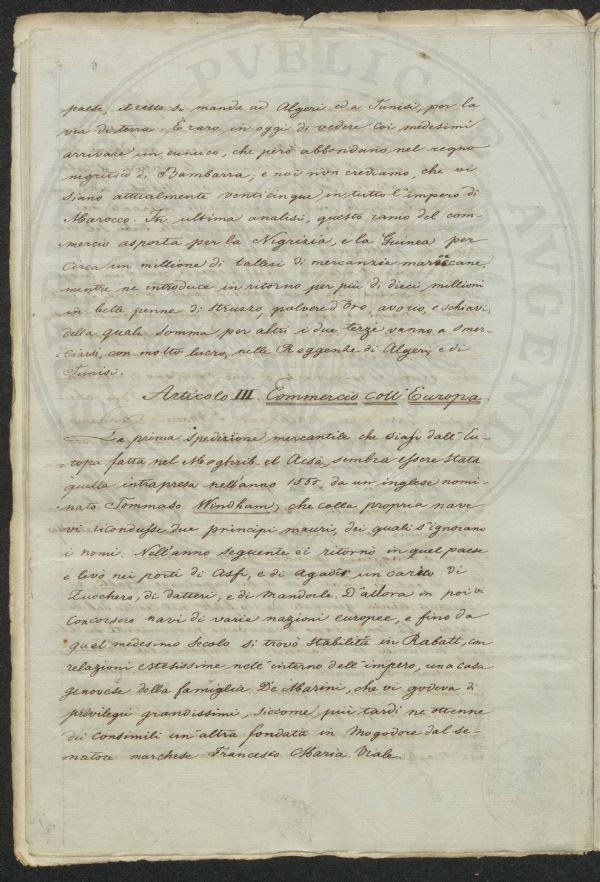 paese, il resto si manda ad Algeri ed a Tunisi, per la
via di terra. È raro, in oggi di vedere coi medesimi
arrivare un eunuco, che però abbondano nel regno
nigritico di Bambarra, e noi non crediamo, che vi
siano attualmente venticinque in tutto l'impero di
Marocco. In ultima analisi, questo ramo del com-
mercio asporta per la Nigrizia, e la Guinea per
circa un millione di talleri di mercanzie maroccane,
mentre ne introduce in ritorno per più di dieci millioni
in belle penne di Struzzo, polvere d'Oro, avorio, e schiavi,
della quale somma per altri i due terzi vanno a smer-
ciarsi, con molto lucro, nelle Reggenze di Algeri, e di
Tunisi.
Articolo III. Commercio coll'Europa.
La prima spedizione mercantile che siasi dall'Eu-
ropa fatta nel Moghrib-el-Acsà, sembra essere stata
quella intrapresa nell'anno 1551, da un inglese nomi-
nato Tommaso Windham, che colla propria nave
vi ricondusse due principi mauri, dei quali s'ignorano
i nomi. Nell'anno seguente ei ritornò in quel paese
e levò nei porti di Asfi, e di Agadir un carico di
Zucchero, di datteri, e di Mandorle. D'allora in poi vi
concorsero navi di varie nazioni europee, e fino da
quel medesimo secolo si trovò stabilita in Rabatt, con
relazioni estesissime nell'interno dell'impero, una casa
genovese della famiglia De Marini, che vi godeva di
privilegii grandissimi, siccome più tardi ne ottenne
dei consimili un'altra fondata in Mogodore dal se-
natore marchese Francesco Maria Viale.